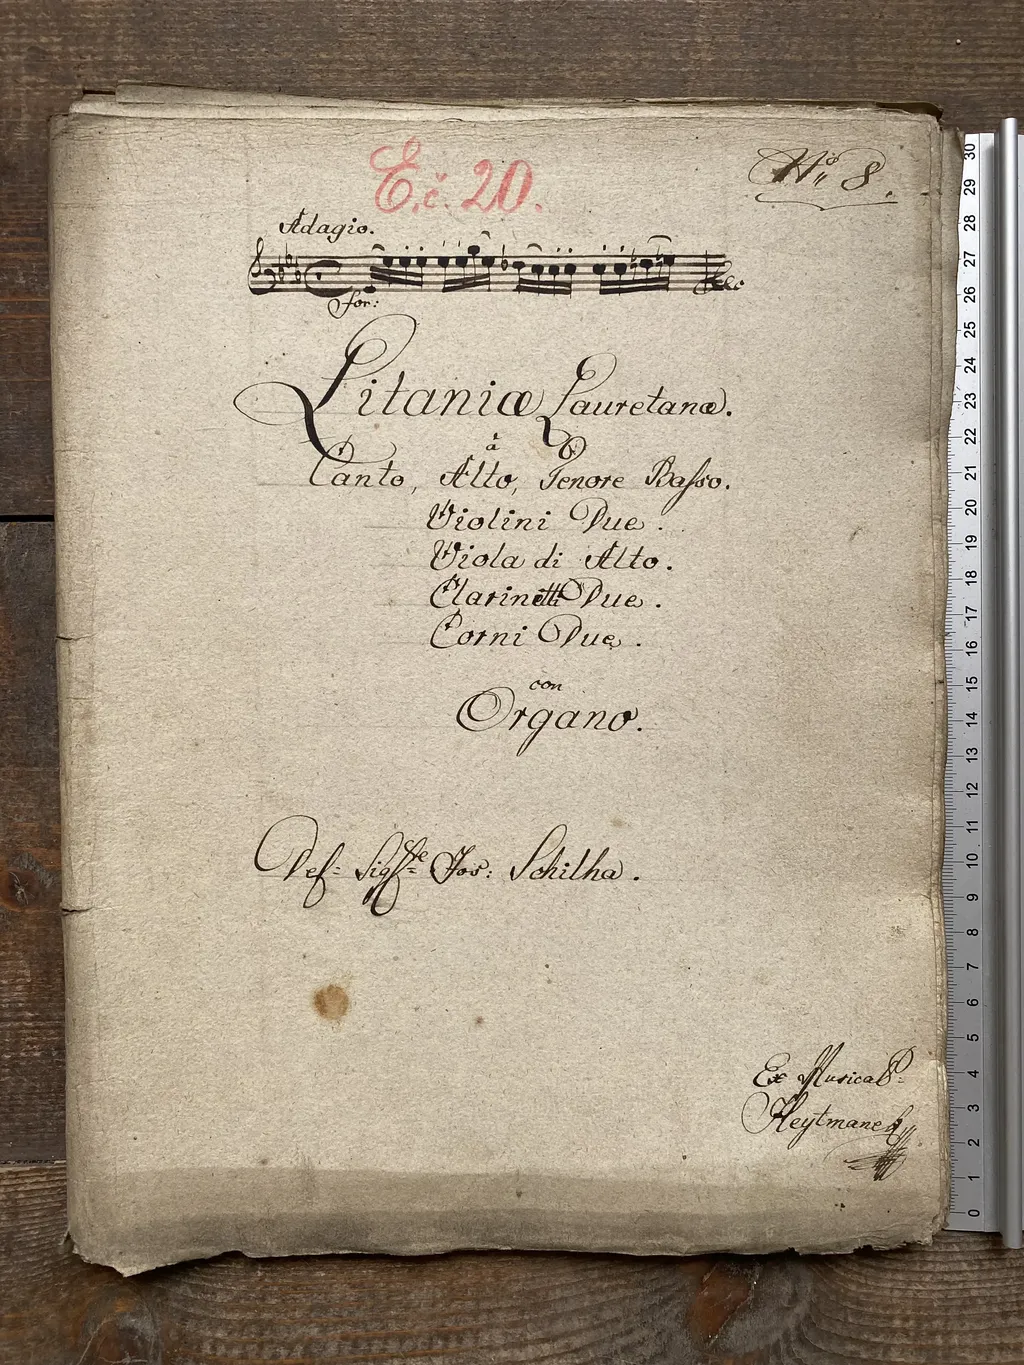 E.č. 20.
Nro 8.
Adagio.
for:
Litaniæ Lauretanæ.
à
Canto, Alto, Tenore Basso.
Violini Due.
Viola di Alto.
Clarinetti Due.
Corni Due.
con
Organo.
Del Sigre Jos: Schilha.
Ex Musical
Heytmanek
30
29
28
27
26
25
24
23
22
21
20
19
18
17
16
15
14
13
12
11
10
9
8
7
6
5
4
3
2
1
0